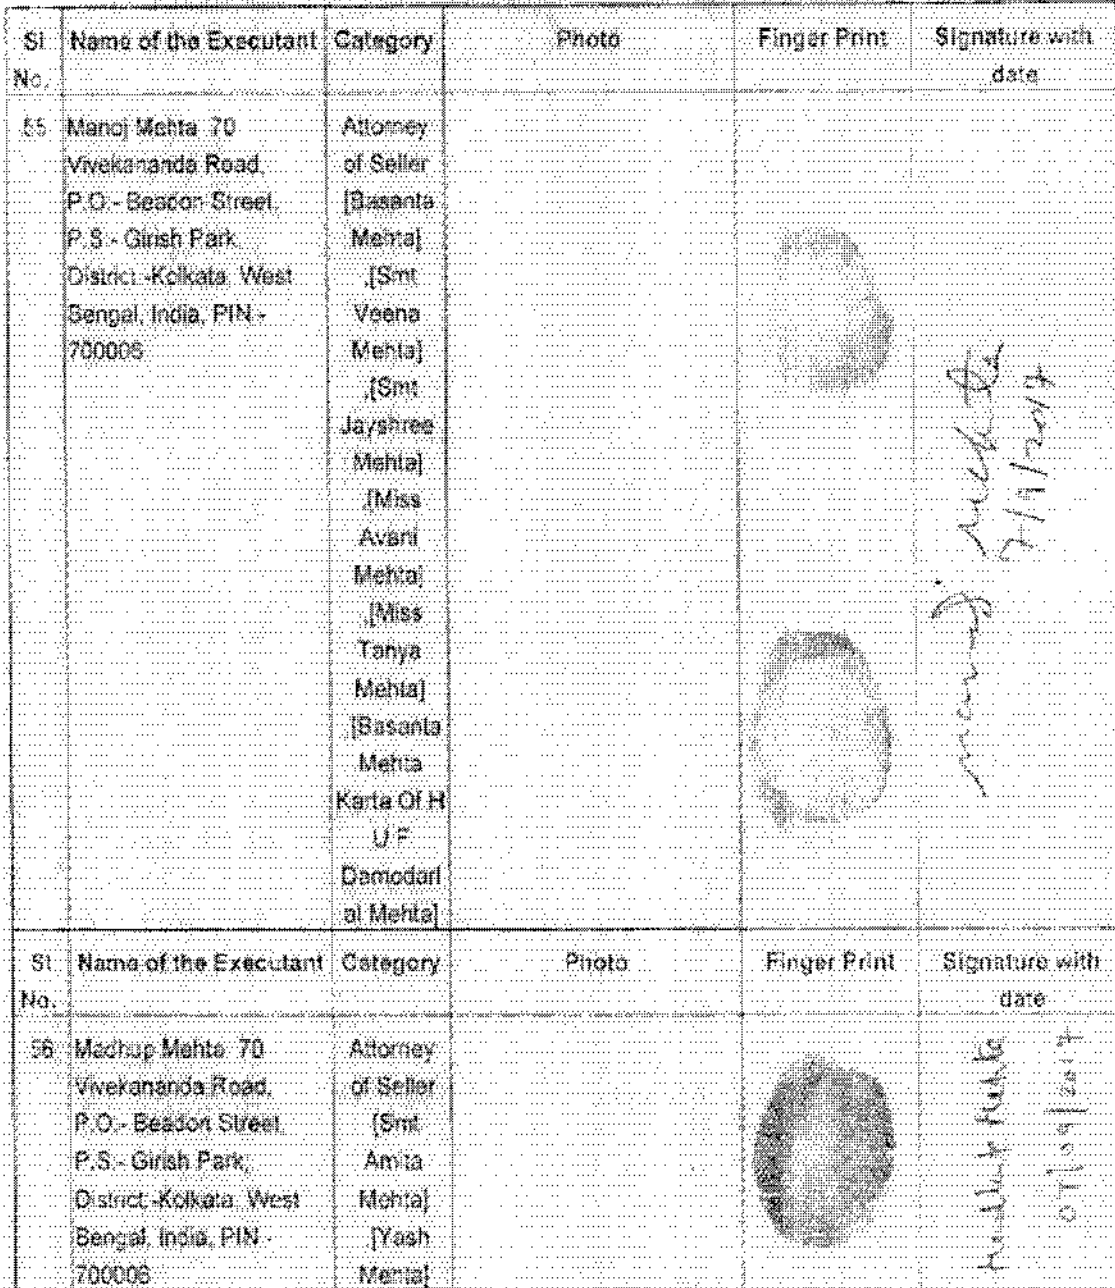 Sl No. Name of the Executant Category Photo Finger Print Signature with date
55 Manoj Mehta 70 Vivekananda Road, P.O:- Beadon Street, P.S:- Girish Park, District:-Kolkata, West Bengal, India, PIN - 700006
Attorney
of Seller
[Basanta
Mehta]
,[Smt
Veena
Mehta]
,[Smt
Jayshree
Mehta]
,[Miss
Avani
Mehta]
,[Miss
Tanya
Mehta]
,[Basanta
Mehta
Karta Of H
U F
Damodarl
al Mehta]
manoj mehta
7/9/2017
Sl No. Name of the Executant Category Photo Finger Print Signature with date
56 Madhup Mehta 70 Vivekananda Road, P.O:- Beadon Street, P.S:- Girish Park, District:-Kolkata, West Bengal, India, PIN - 700006
Attorney
of Seller
[Smt
Amita
Mehta]
,[Yash
Mehta]
07/09/2017